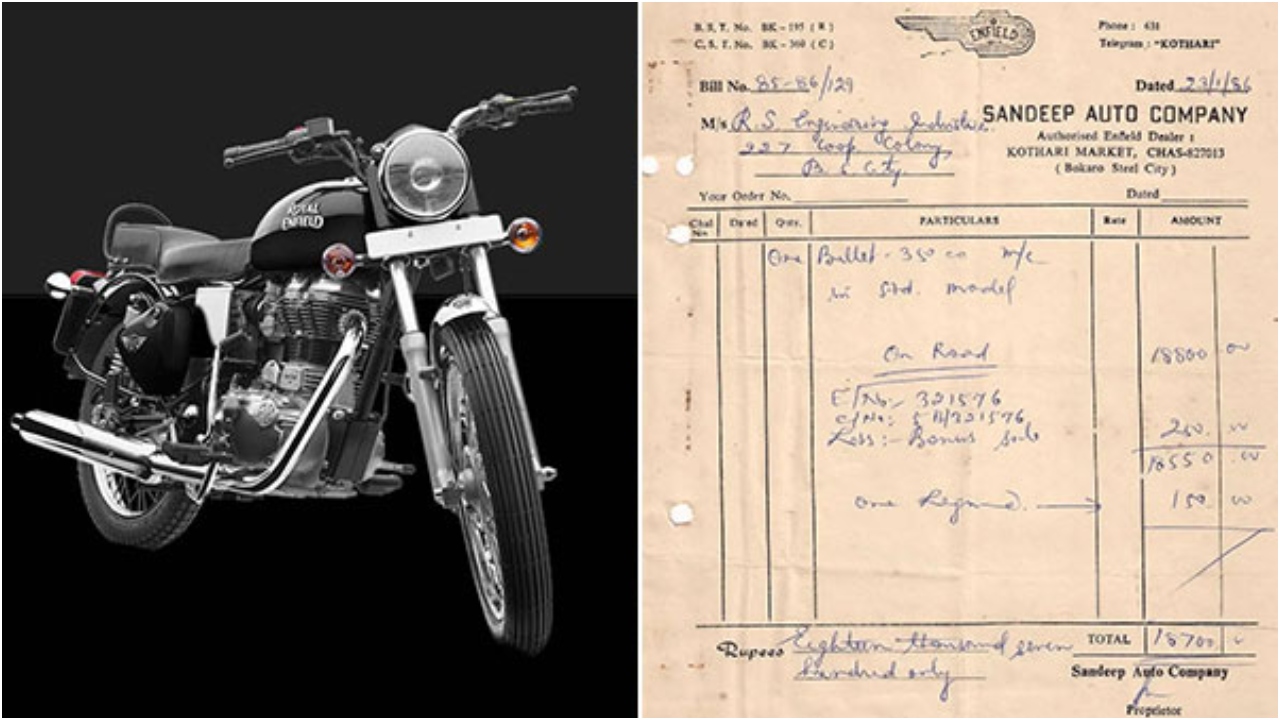 ROYAL
ENFIELD
B.S.T. No. BK-195 ( R )
C.S.T. No. BK-360 ( C )
ENFIELD
Phone : 431
Telegram : "KOTHARI"
Bill No. 85-86/129
Dated 23/1/86
M/s R.S. Engineering Industries
227 Coop. Colony,
B. S. City.
SANDEEP AUTO COMPANY
Authorised Enfield Dealer :
KOTHARI MARKET, CHAS-827013
( Bokaro Steel City )
Your Order No. Dated
Chal No. Dated Qnty. PARTICULARS Rate AMOUNT
One Bullet - 350 cc m/c
in Std. model
On Road 18800 00
E/No:- 321576
C/No: 5 B/321576
Less :- Bonus 250. 00
18550 .00
one → 150 00
TOTAL 18700
Rupees Eighteen thousand seven
hundred only
Sandeep Auto Company
Proprietor